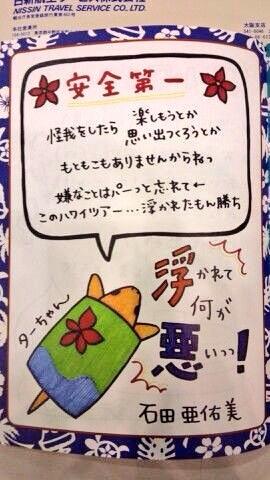 日新航空サービス株式会社
NISSIN TRAVEL SERVICE CO.,LTD.
本社営業部
大阪支店
安全第一
怪我をしたら 楽しもうとか
思い出つくろうとか
もともこもありませんからねっ
嫌なことはパーっと忘れて←
このハワイツアー…浮かれたもん勝ち
ターちゃん
浮かれて
何が
悪いっっ!
石田 亜佑美